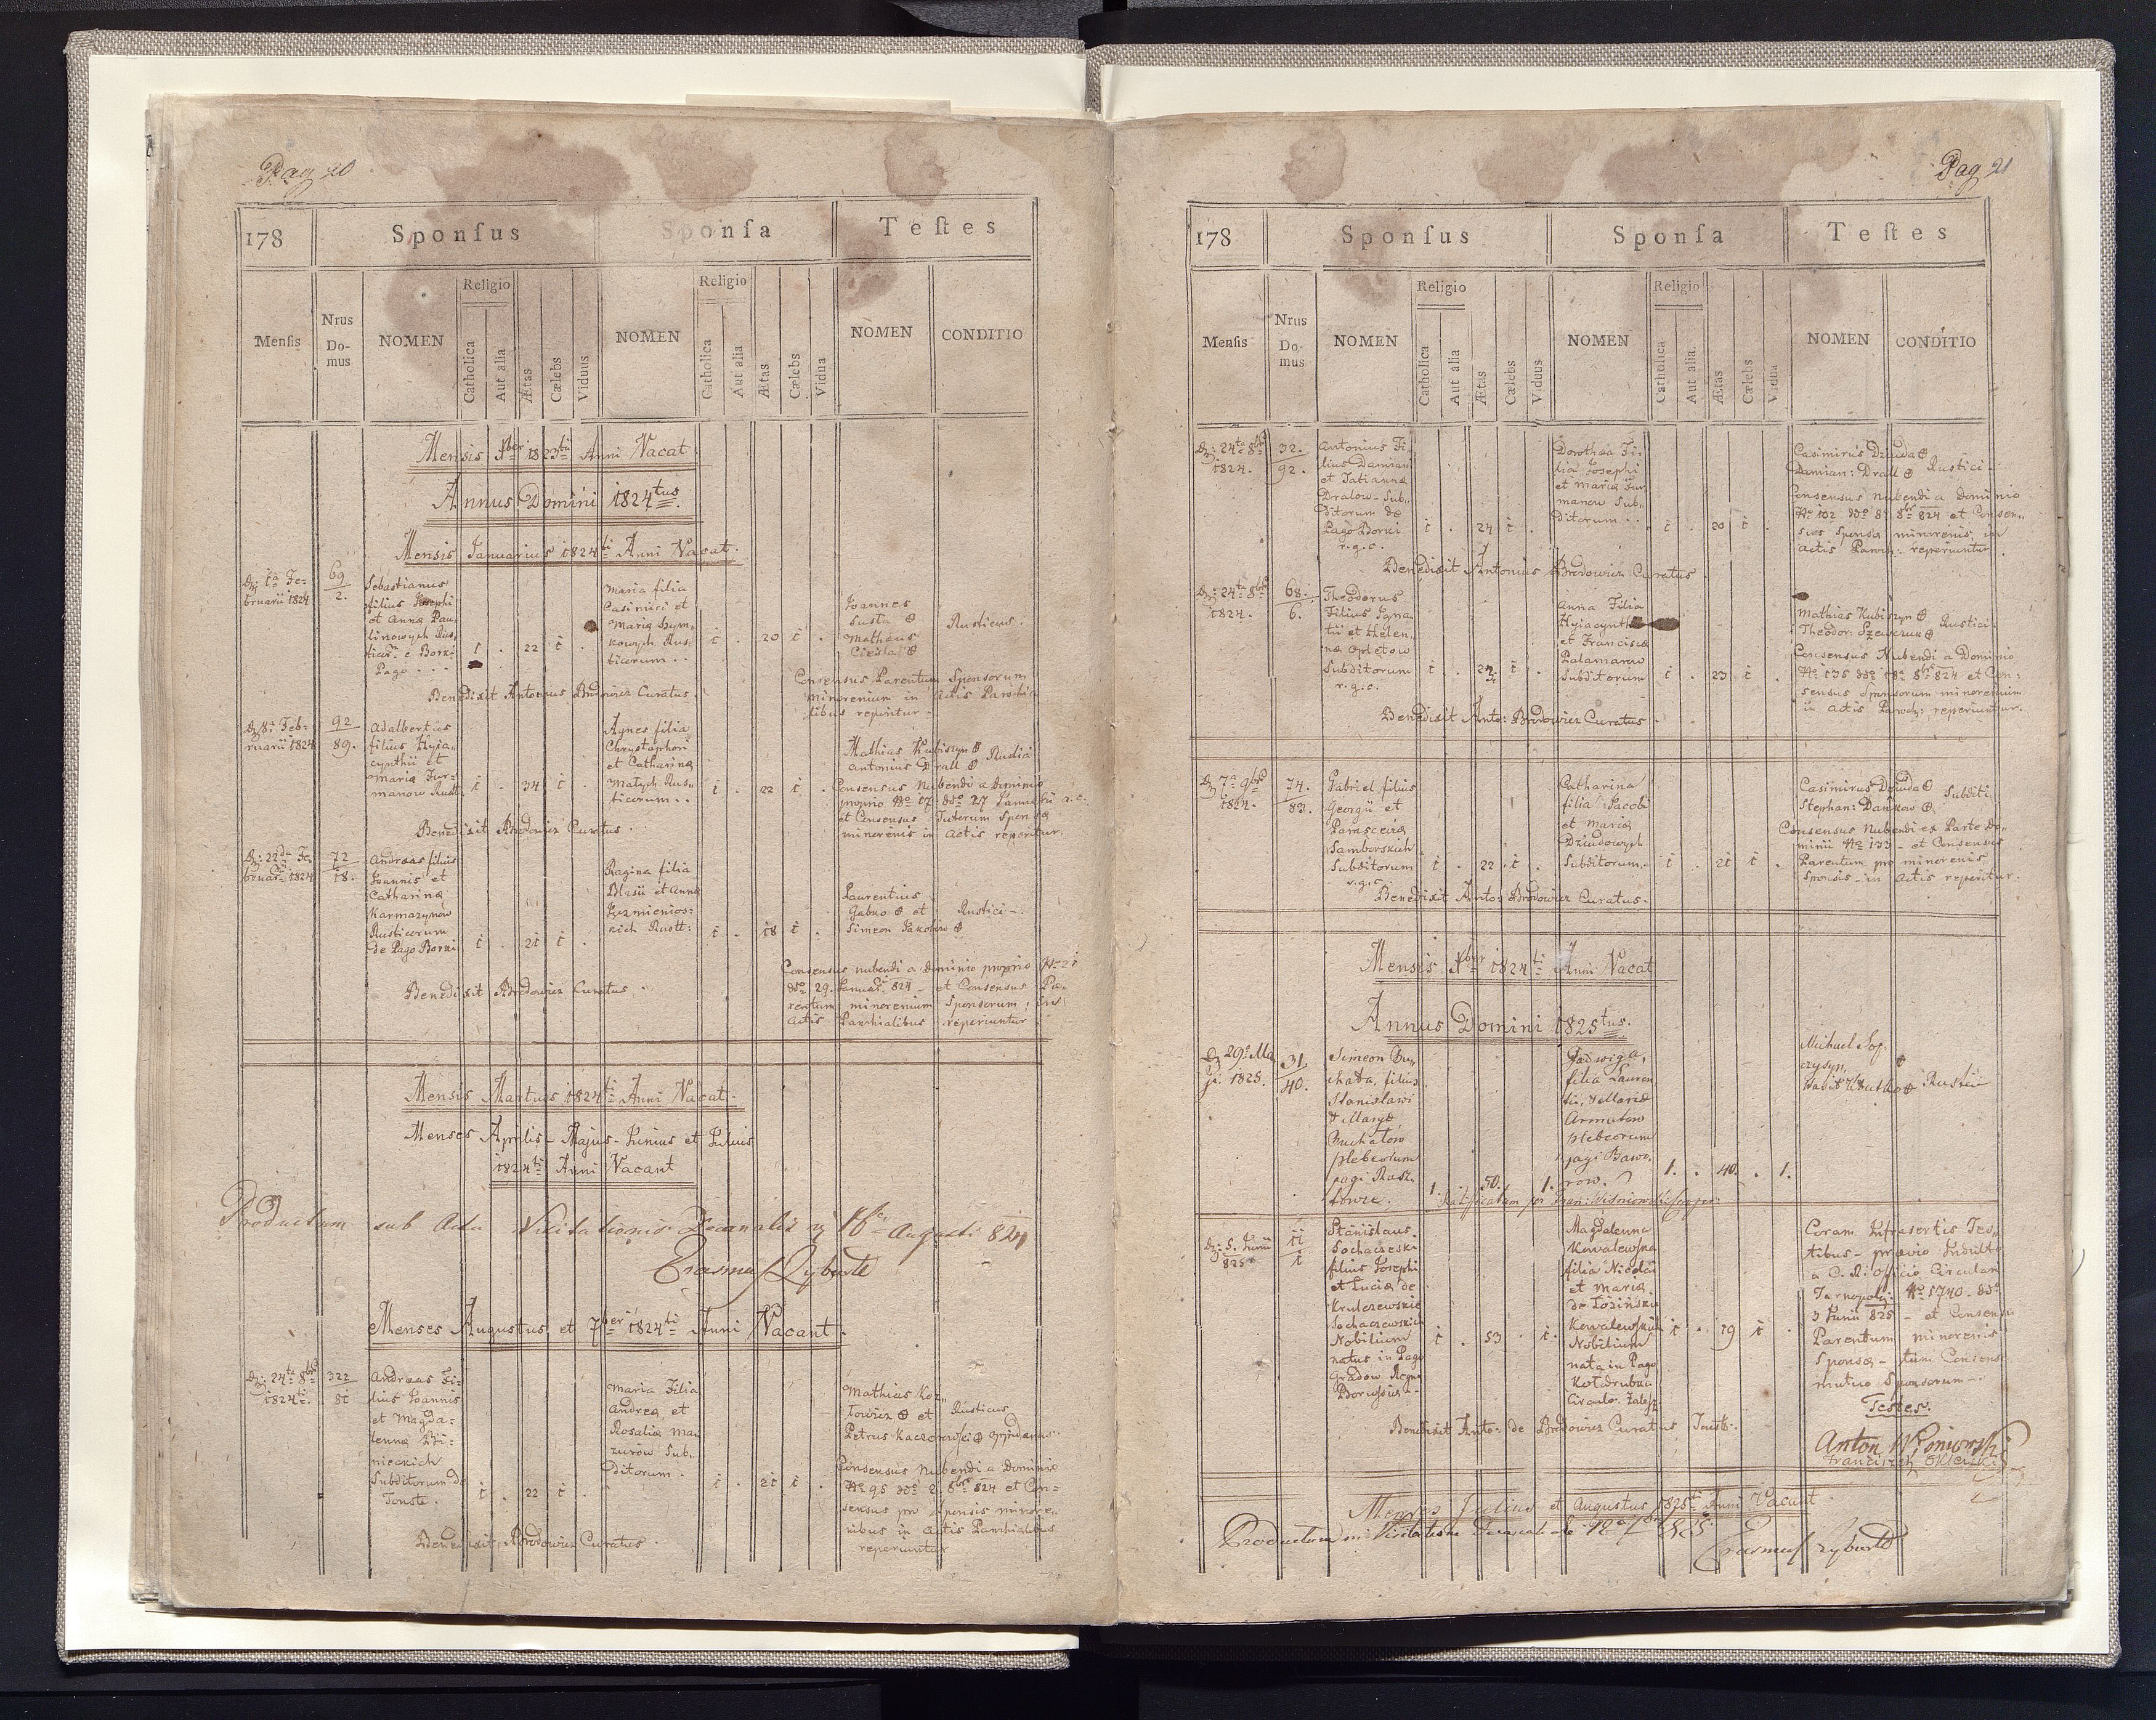 Pag 20
178
Sponſus
Sponſa
Teſtes
Menſis
Nrus
Do-
mus
NOMEN
Religio
Catholica
Aut alia
Ætas
Cælebs
Viduus
NOMEN
Religio
Catholica
Aut alia
Ætas
Cælebs
Vidua
NOMEN
CONDITIO
Mensis Xber 1823tii Anni Vacat
Annus Domini 1824tus.
Mensis Januarius 1824ti Anni Vacat.
D: 1a Fe-
bruarii 1824
69
2.
Sebastianus
filius Josephi
et Anna Pau-
linowych Rus-
tico: e Borki
Pago
1 . 22 1 .
Maria filia
Casimiri et
Maria Szym-
kowych Rus-
ticorum . .
1 . 20 1 .
Joannes
Susta
Matheus
Ciesla
Rusticus.
Consensus Parentum Sponsorum
minorenium in Actis Parochia
libus reperitur -
Benedixit Antonius Brodowicz Curatus
D: 8: Feb-
ruarii 1824
92
89.
Adalbertus
filius Hyia-
cynthii et
Maria Fur-
manow Rust.
1 . 34 1 .
Agnes filia
Chrystophori
et Catharina
Matych Rus-
ticorum . .
1 . 22 1 .
Mathias Kubiszyn
Antonius Drall
Rustici
Consensus Nubendi a Dominio
proprio No 17 ddo 27 Januarii a.c.
et Consensus Tutorum Sponsa
minorenis in Actis reperitur.
Benedixit Brodowicz Curatus.
D: 22da Fe-
bruar: 1824
72
18.
Andreas filius
Joannis et
Catharina
Karmazynow
Rusticorum
de Pago Borki
1 . 21 1 .
Ragina filia
Blasii et Anna
Kuzmienios-
kich Rustt:
1 . 18 1 .
Laurentius
Gabno et
Simeon Jakobow
Rustici -.
Consensus nubendi a Dominio proprio No 21
ddo 29. Januar: 824 - et Consensus Pa-
rentum minorenium Sponsorum, in
Actis Parochialibus reperiuntur
Benedixit Brodowicz Curatus.
Mensis Martius 1824ti Anni Vacat.
Menses Aprilis - Majus - Junius et Julius
1824ti Anni Vacant
Productum sub Actu Visitationis Decanalis 16a Augusti 824
Erasmus Ryboste
Menses Augustus et 7ber 1824ti Anni Vacant.
D: 24ta 8bris
1824ti.
322
81
Andreas Fi-
lius Joannis
et Magda-
lenna Bi-
nieckich
Subditorum de
Touste.
1 . 22 1 .
Maria Filia
Andrea, et
Rosalia Ma-
zurow Sub-
ditorum.
1 . 21 1 .
Mathias Koz-
lowicz et
Petrus Kaczorowski
Rusticus
oppidanus
Consensus Nubendi a Dominio
No 95 ddo 2 8bris 824 et Con-
sensus pro Sponsis minore-
nibus in Actis Parochialibus
reperiuntur
Benedixit Brodowicz Curatus.
Pag 21
178
Sponſus
Sponſa
Teſtes
Menſis
Nrus
Do-
mus
NOMEN
Religio
Catholica
Aut alia
Ætas
Cælebs
Viduus
NOMEN
Religio
Catholica
Aut alia.
Ætas
Cælebs
Vidua
NOMEN
CONDITIO
D: 24ta 8bris
1824.
32.
92.
Antonius Fi-
lius Damiani
et Tatianna
Dralow - Sub-
ditorum de
Pago Borki
r.g.c.
1 . 24 1 .
Dorothea Fi-
lia Josephi
et Maria Fur
manow Sub-
ditorum . .
1 . 20 1 .
Casimirus Dziuda
Damian: Drall
Rustici -
Consensus Nubendi a Dominio
No 102 ddo 8 8br 824 et Consen-
sus Sponsa minorenis, in
Actis Paroch: reperiuntur
Benedixit Antonius Brodowicz Curatus.
D: 24ta 8bris
1824.
68.
6.
Theodorus
Filius Igna-
tii et Helen-
na Opletow
Subditorum
r.g.c.
1 . 24 1 .
Anna Filia
Hyiacynth
et Francisca
Palamarow
Subditorum
1 . 23 1 .
Mathias Kubiszyn
Theodor: Szewczuk
Rustici
Consensus Nubendi a Dominio
No 135 ddo 18 8bris 824 et Con-
sensus Sponsorum minorenium
in Actis Paroch: reperiuntur.
Benedixit Anto: Brodowicz Curatus
D: 7a 9bris
1824.
74.
83.
Gabriel filius
Georgii et
Parascevia
Samborskich
Subditorum
r.g.c.
1 . 22 . 1 .
Catharina
filia Jacobi
et Maria
Dziudowych
Subditorum.
1 . 21 1 .
Casimirus Dziuda
Stephan: Dankow
Subditi
Consensus Nubendi ex Parte Do-
minii No 133 - et Consensus
Parentum pro minorenis
Sponsis - in Actis reperitur.
Benedixit Anto: Brodowicz Curatus.
Mensis Xber 1824ti Anni Vacat
Annus Domini 1825tus.
D. 29a Ma
ji. 1825.
31.
40.
Simeon Bu-
chata, filius
Stanislawi
& Marya
Buchatow
plebeorum
pagi
1. . 50. . 1.
Jadwiga,
filia Lauren
tii, & Maria
Armatow
plebeorum
pagi Bawo-
row.
1. . 40. . 1.
Michael
Rustici
D: 5. Junii
825
11
1
Stanislaus
Sochaczeski
filius Josephi
et Lucia de
Krulczewskie
Sochaczewskich
Nobilium
natus in Pago
Gradow Regno
Borussia -
1 . 53 . 1.
Magdalenna
Kowalewska
filia Nicolai
et Maria
de Łozińska
Kowalewskich
Nobilium
nata in Pago
Kotodrubka
Circulo Zalesz:
1 . 19 1 .
Coram Infrasertis Tes-
tibus - prævio Indulto
a C. R: Officio Circulari
Tarnopoli: No 5740 - ddo
3 Junii 825 - et Consensu
Parentum minorenis
Sponsa - tum Consensu
mutuo Sponsorum -.
Testes.
Anton Wroniowski
Franciszek
Benedixit Anto: de Brodowicz Curatus Toust:
Menses Julius et Augustus 1825ti Anni Vacant
Productum in Visitatione Decanali de 12a 7bris 825.
Erasmus Ryboste